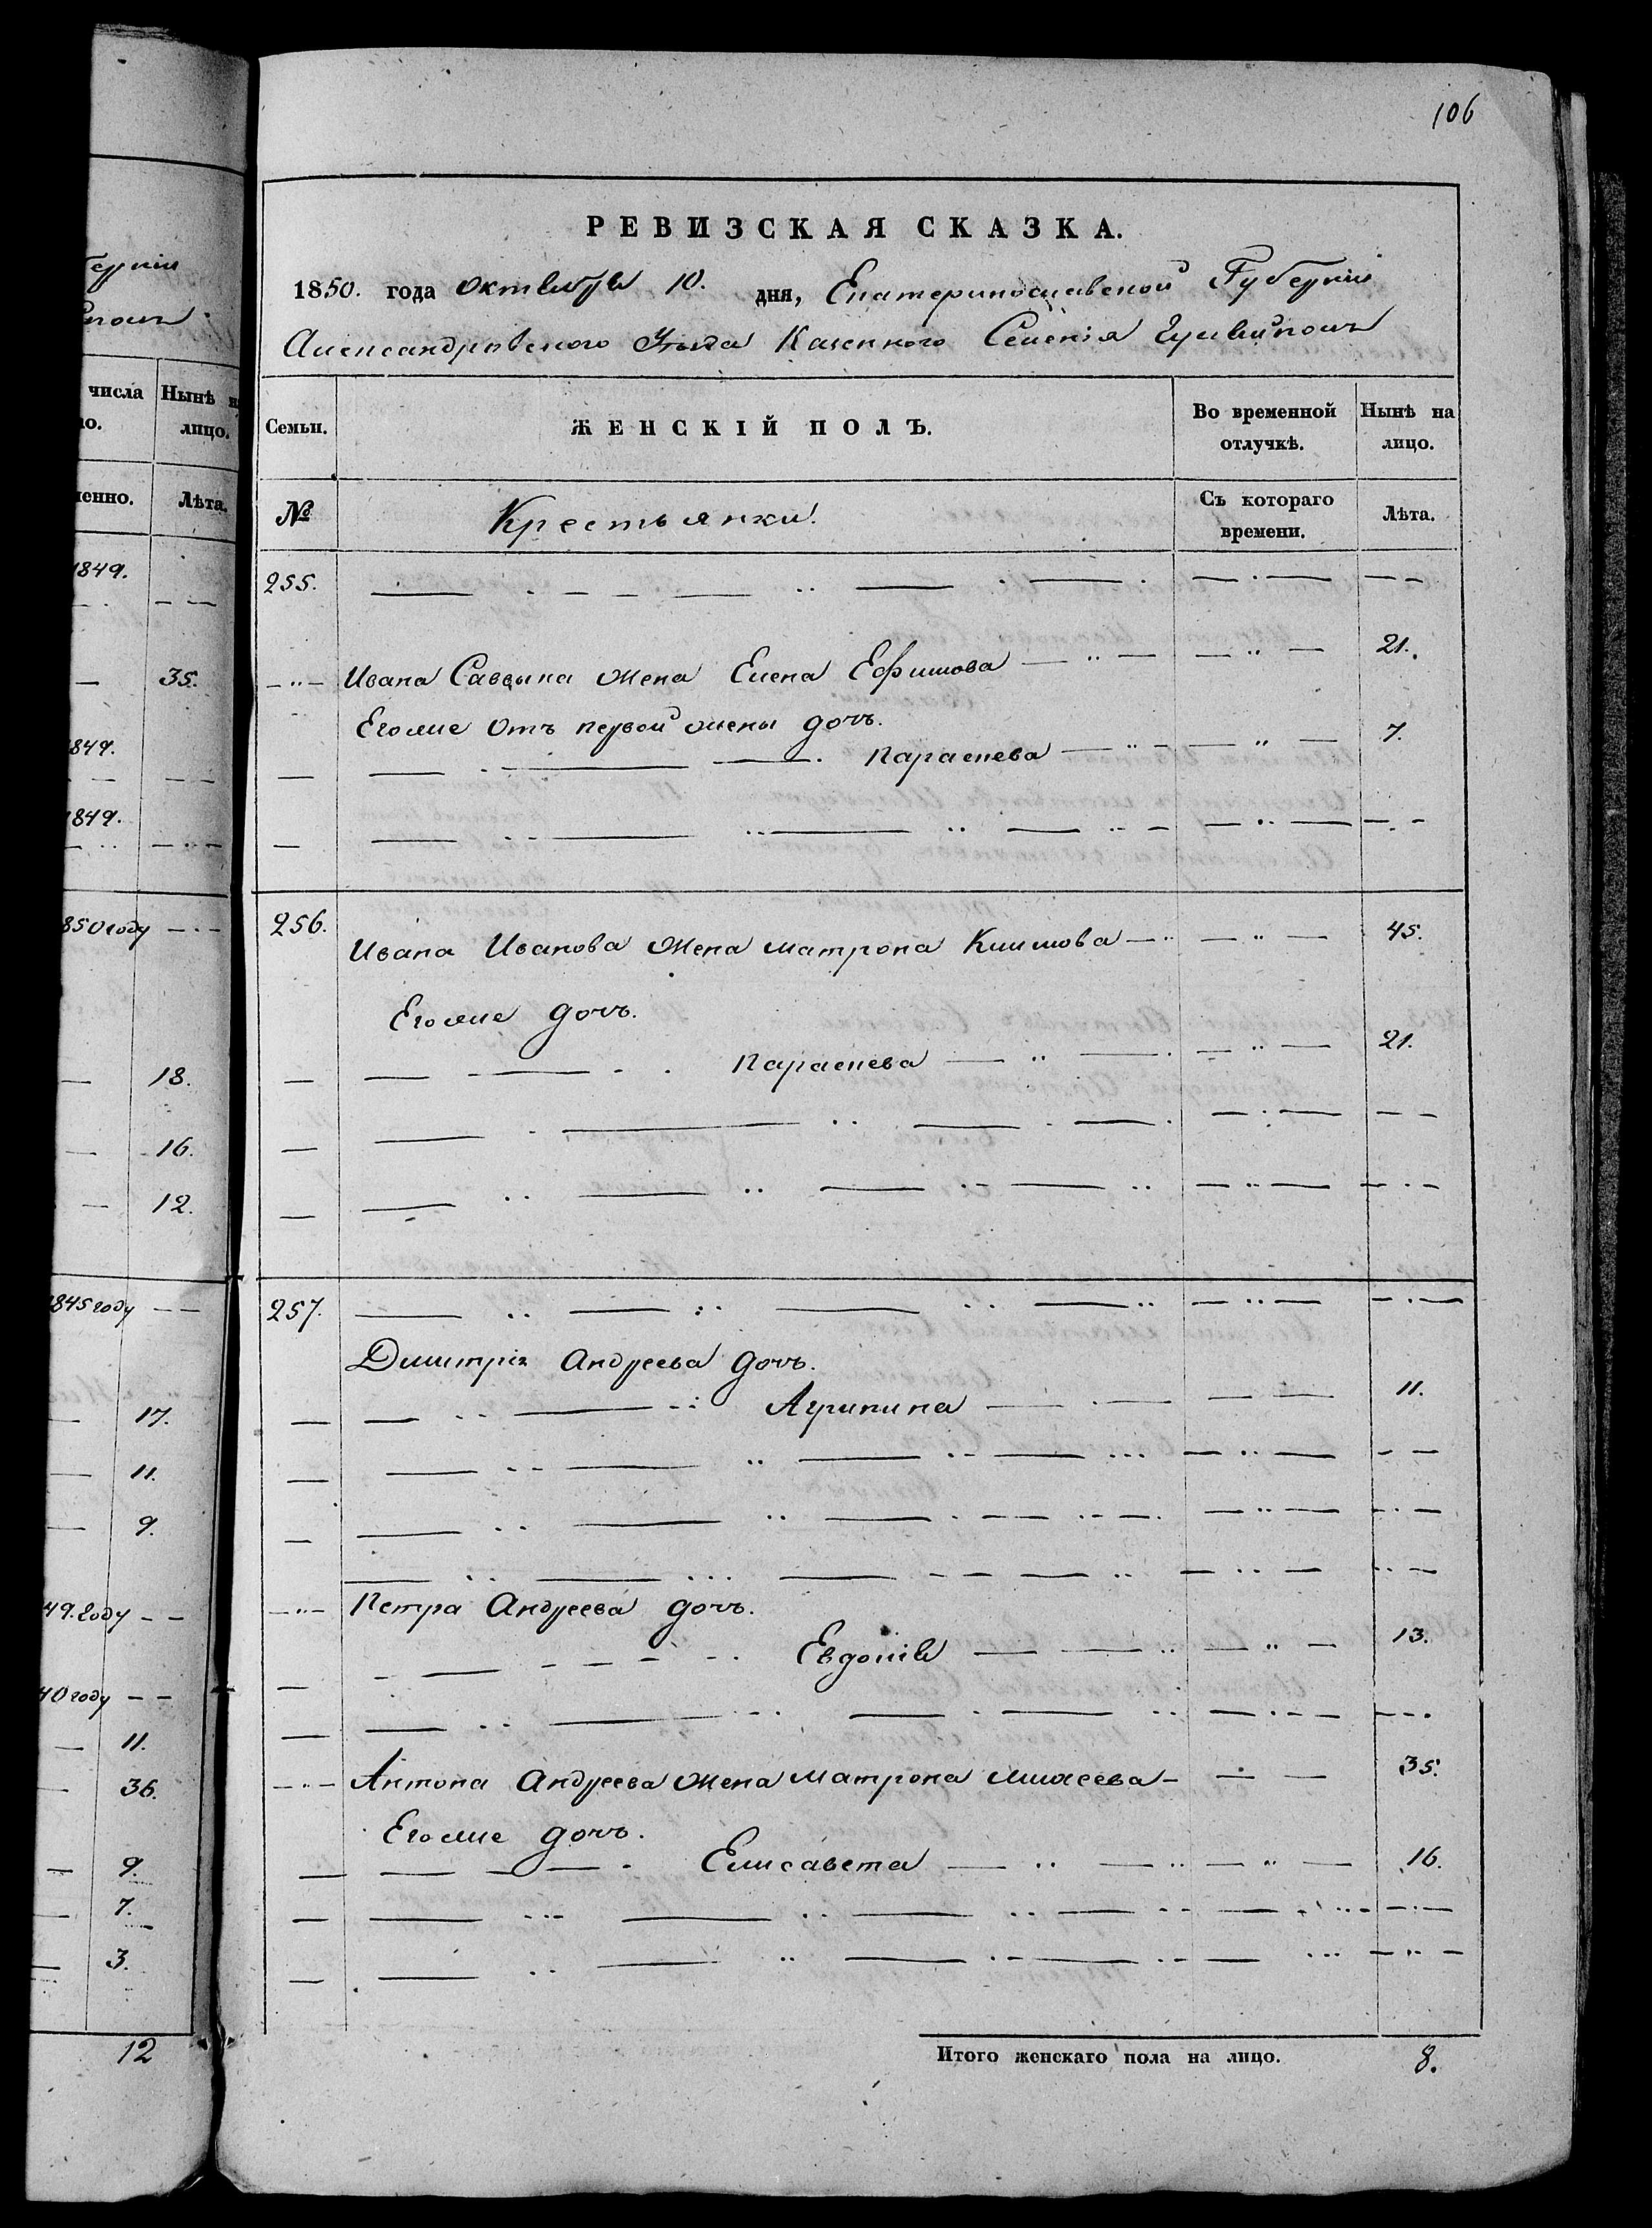 106
РЕВИЗСКАЯ СКАЗКА.
1850. года Октября 10. дня, Екатеринославской Губерніи
Александровского Уезда Казенного Селенія
Семьи.
ЖЕНСКІЙ ПОЛЪ.
Во временной отлучкѣ.
Нынѣ на лицо.
№
Крестьянки.
Съ котораго времени.
Лѣта.
255.
Ивана Саввына жена Елена Ефимова 21.
Его же отъ первой жены дочь.
Параскева 7.
256.
Ивана Иванова жена Матрона Климова 45.
Его же дочь.
Параскева 21.
257.
Димитрія Андреева дочь.
Агрипина 11.
Петра Андреева дочь.
Евдокія 13.
Антона Андреева жена Матрона 35.
Его же дочь.
Елисавета 16.
Итого женскаго пола на лицо. 8.
числа
Нынѣ на
лицо.
Лѣта.
1849.
35.
1849.
1849.
1850 году
18.
16.
12.
1845 году
17.
11.
9.
49. году
40 году
11.
36.
9.
7.
3.
12